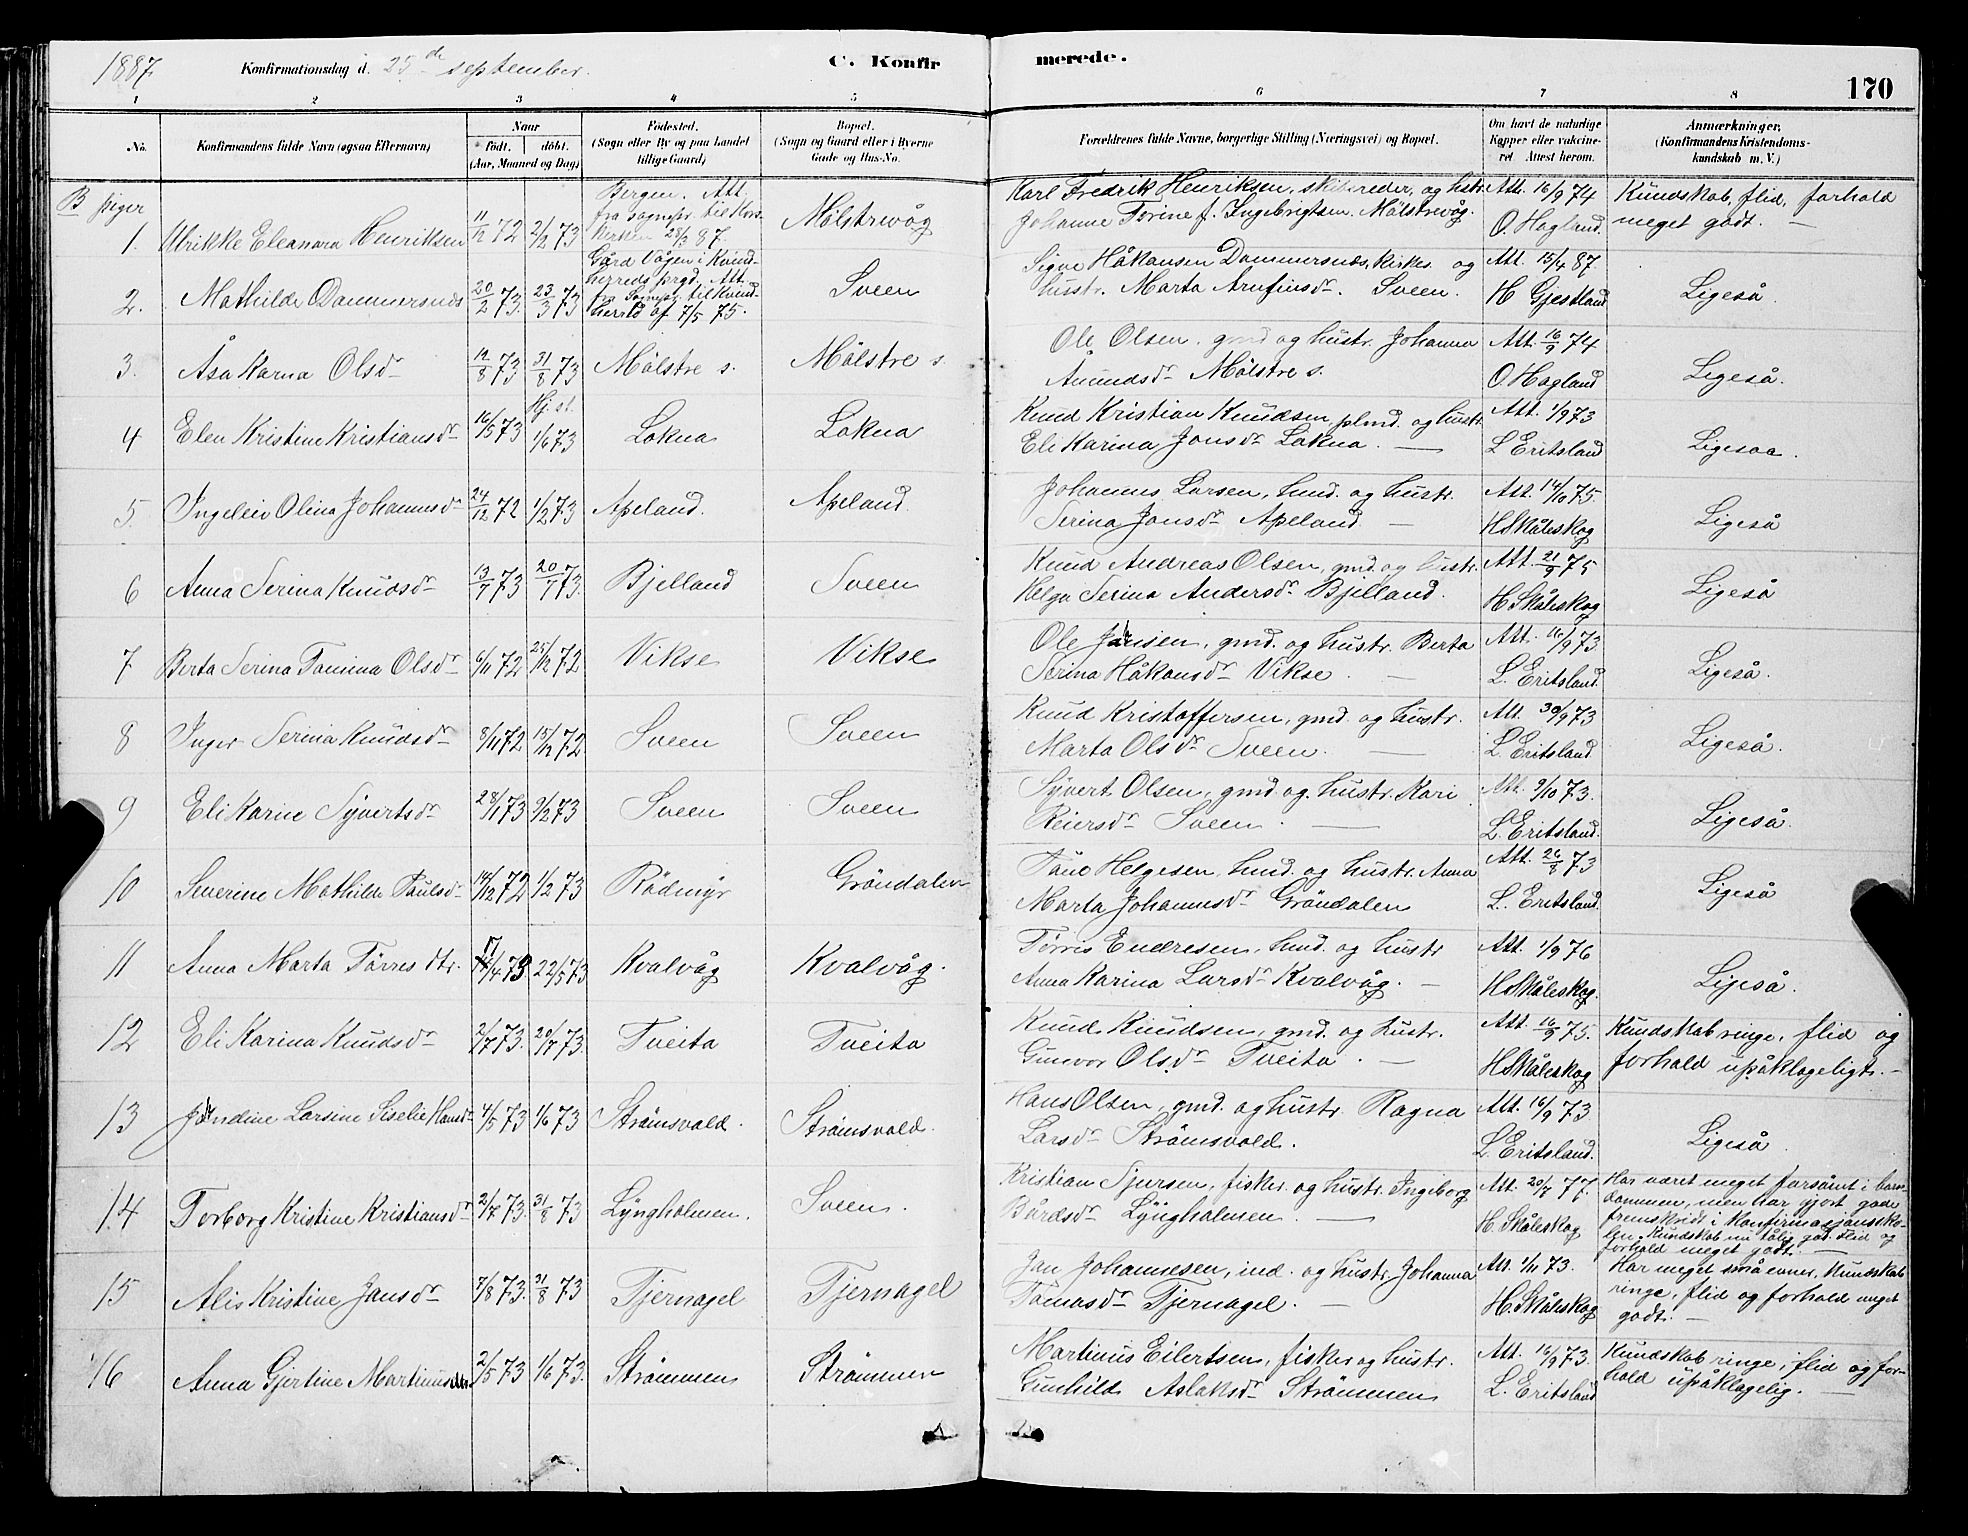 1887 Konfirmationsdag d. 25de september. C. Konfirmerede. 170
1 2 3 4 5 6 7 8
No. Konfirmandens fulde Navn (ogsaa Efternavn) Naar født. døbt. (Aar, Maaned og Dag) Fødested. (Sogn eller By og paa Landet tillige Gaard) Bopæl. (Sogn og Gaard eller i Byerne Gade og Hus-No. Forældrenes fulde Navne, borgerlige Stilling (Næringsvei) og Bopæl. Om havt de naturlige Kopper eller vakcineret. Attest herom. Anmærkninger. (Konfirmandens Kristendomskundskab m. V.)
B piger
1. Ulrikke Eleanora Henriksen 11/12 72 2/2 73 Bergen. Att. fra sognepr. til Korskirken 28/3 87. Mölstrevåg Karl Fredrik Henriksen, skibsreder, og hstr.
Johanne Torine f. Ingebrigtsen. Mölstrevåg. Att. 16/9 74 O. Hagland. Kundskab, flid, forhold meget godt. —
2. Mathilde Dommersnæs 20/2 73. 23/3 73 Gård Vågen i Kvindherreds prgd. Att. fra Sognepr. til Kvindherred af 7/5 75. Sveen Signe Håkonsen Dommersnæs, kirkes. og
hustr. Marta Arnfinsdr. Sveen. Att. 15/4 87. H Gjestland Ligeså.
3. Åsa Karna Olsdr 12/8 73 31/8 73 Mölstre s. Mölstre s. Ole Olsen, gmd og hustr. Johanna
Åmundsdr Mölstre s. Att. 16/9 74 O. Hagland Ligeså.
4 Elen Kristine Kristiansdr 16/5 73 Hj. st. 1/6 73 Lokna Lokna Knud Kristian Knudsen plmd. og hustr.
Eli Karina Jonsdr Lokna. — Att. 1/9 73 L Eritsland Ligesaa.
5. Ingeleiv Olina Johannesdr 24/12 72 1/2 73 Apeland. Apeland Johannes Larsen, hmd. og hustr.
Serina Jonsdr Apeland — Att. 14/10 75. H Skåleskog Ligeså
6 Anna Serina Knudsdr 13/7 73 20/7 73. Bjelland Sveen Knud Andreas Olsen, gmd og hustr.
Helga Serina Andersdr Bjelland. Att. 21/9 75 H Skåleskog Ligeså
7 Berta Serina Tomina Olsdr 6/11 72 25/12 72 Vikse Vikse Ole Jansen, gmd. og hustr. Berta
Serina Håkonsdr Vikse. — Att. 16/9 73 L. Eritsland. Ligeså.
8 Inger Serina Knudsdr 8/11 72 15/12 72 Sveen Sveen Knud Kristoffersen, gmd. og hustr.
Marta Olsdr Sveen. — Att. 30/9 73 L. Eritsland Ligeså.
9 Eli Karine Syvertsdr 28/1 73 9/2 73 Sveen Sveen Syvert Olsen, gmd og. hustr. Kari
Reiersdr Sveen. — Att. 9/10 73. L. Eritsland. Ligeså.
10 Severine Mathilde Paulsdr 14/12 72 1/2 73 Rödmyr Gröndalen Paul Helgesen, hmd. og hustr. Anna
Marta Johannesdr Gröndalen Att. 26/8 73 L. Eritsland. Ligeså
11 Anna Marta Törres dtr. 17/4 73 22/5 73 Kvalvåg Kvalvåg. Törris Endresen, hmd. og hustr
Anna Karina Larsdr Kvalvåg. — Att. 1/9 76 H. Skåleskog. Ligeså.
12 Eli Karina Knudsdr 2/7 73. 20/7 73 Tveita Tveita Knud Knudsen, gmd. og hustr.
Gunvor Olsdr Tveita. — Att. 16/9 75. H Skåleskog Kundskab ringe, flid og forhold upåklageligt. —
13 Jondine Larsine Siselie Hansdr 4/5 73 1/6 73 Strömsvold. Strömsvold. Hans Olsen, gmd. og hustr. Ragna
Larsdr Strömsvold. Att. 16/9 73 L. Eritsland. Ligeså
14 Torborg Kristine Kristiansdr 2/7 73. 31/8 73 Lyngholmen. Sveen. Kristian Sjursen, fisker og hustr. Ingeborg
Bårdsdr Lyngholmen. — Att. 20/8 77. H. Skåleskog Har været meget forsömt i barndommen, men har gjort gode fremskridt i Konfirmasjonsskolen, Kundskab nu tålig god. Flid og forhold meget godt. —
15 Alis Kristine Jansdr 7/8 73. 31/8 73 Tjernagel Tjernagel Jan Johannesen, ind. og hustr. Johanna
Tomasdr Tjernagel. — Att. 1/11 73. H. Skåleskog Har meget små evner, Kundskab ringe, flid og forhold meget godt. —
16 Anna Gjertine Martinusdtr 2/5 73 1/6 73. Strömmen Strömmen Martinus Eilertsen, fisker og hustr.
Gunhild Aslaksdr Strömmen Att. 16/9 73. L. Eritsland Kundskab ringe, flid og forhold upåklagelig. —